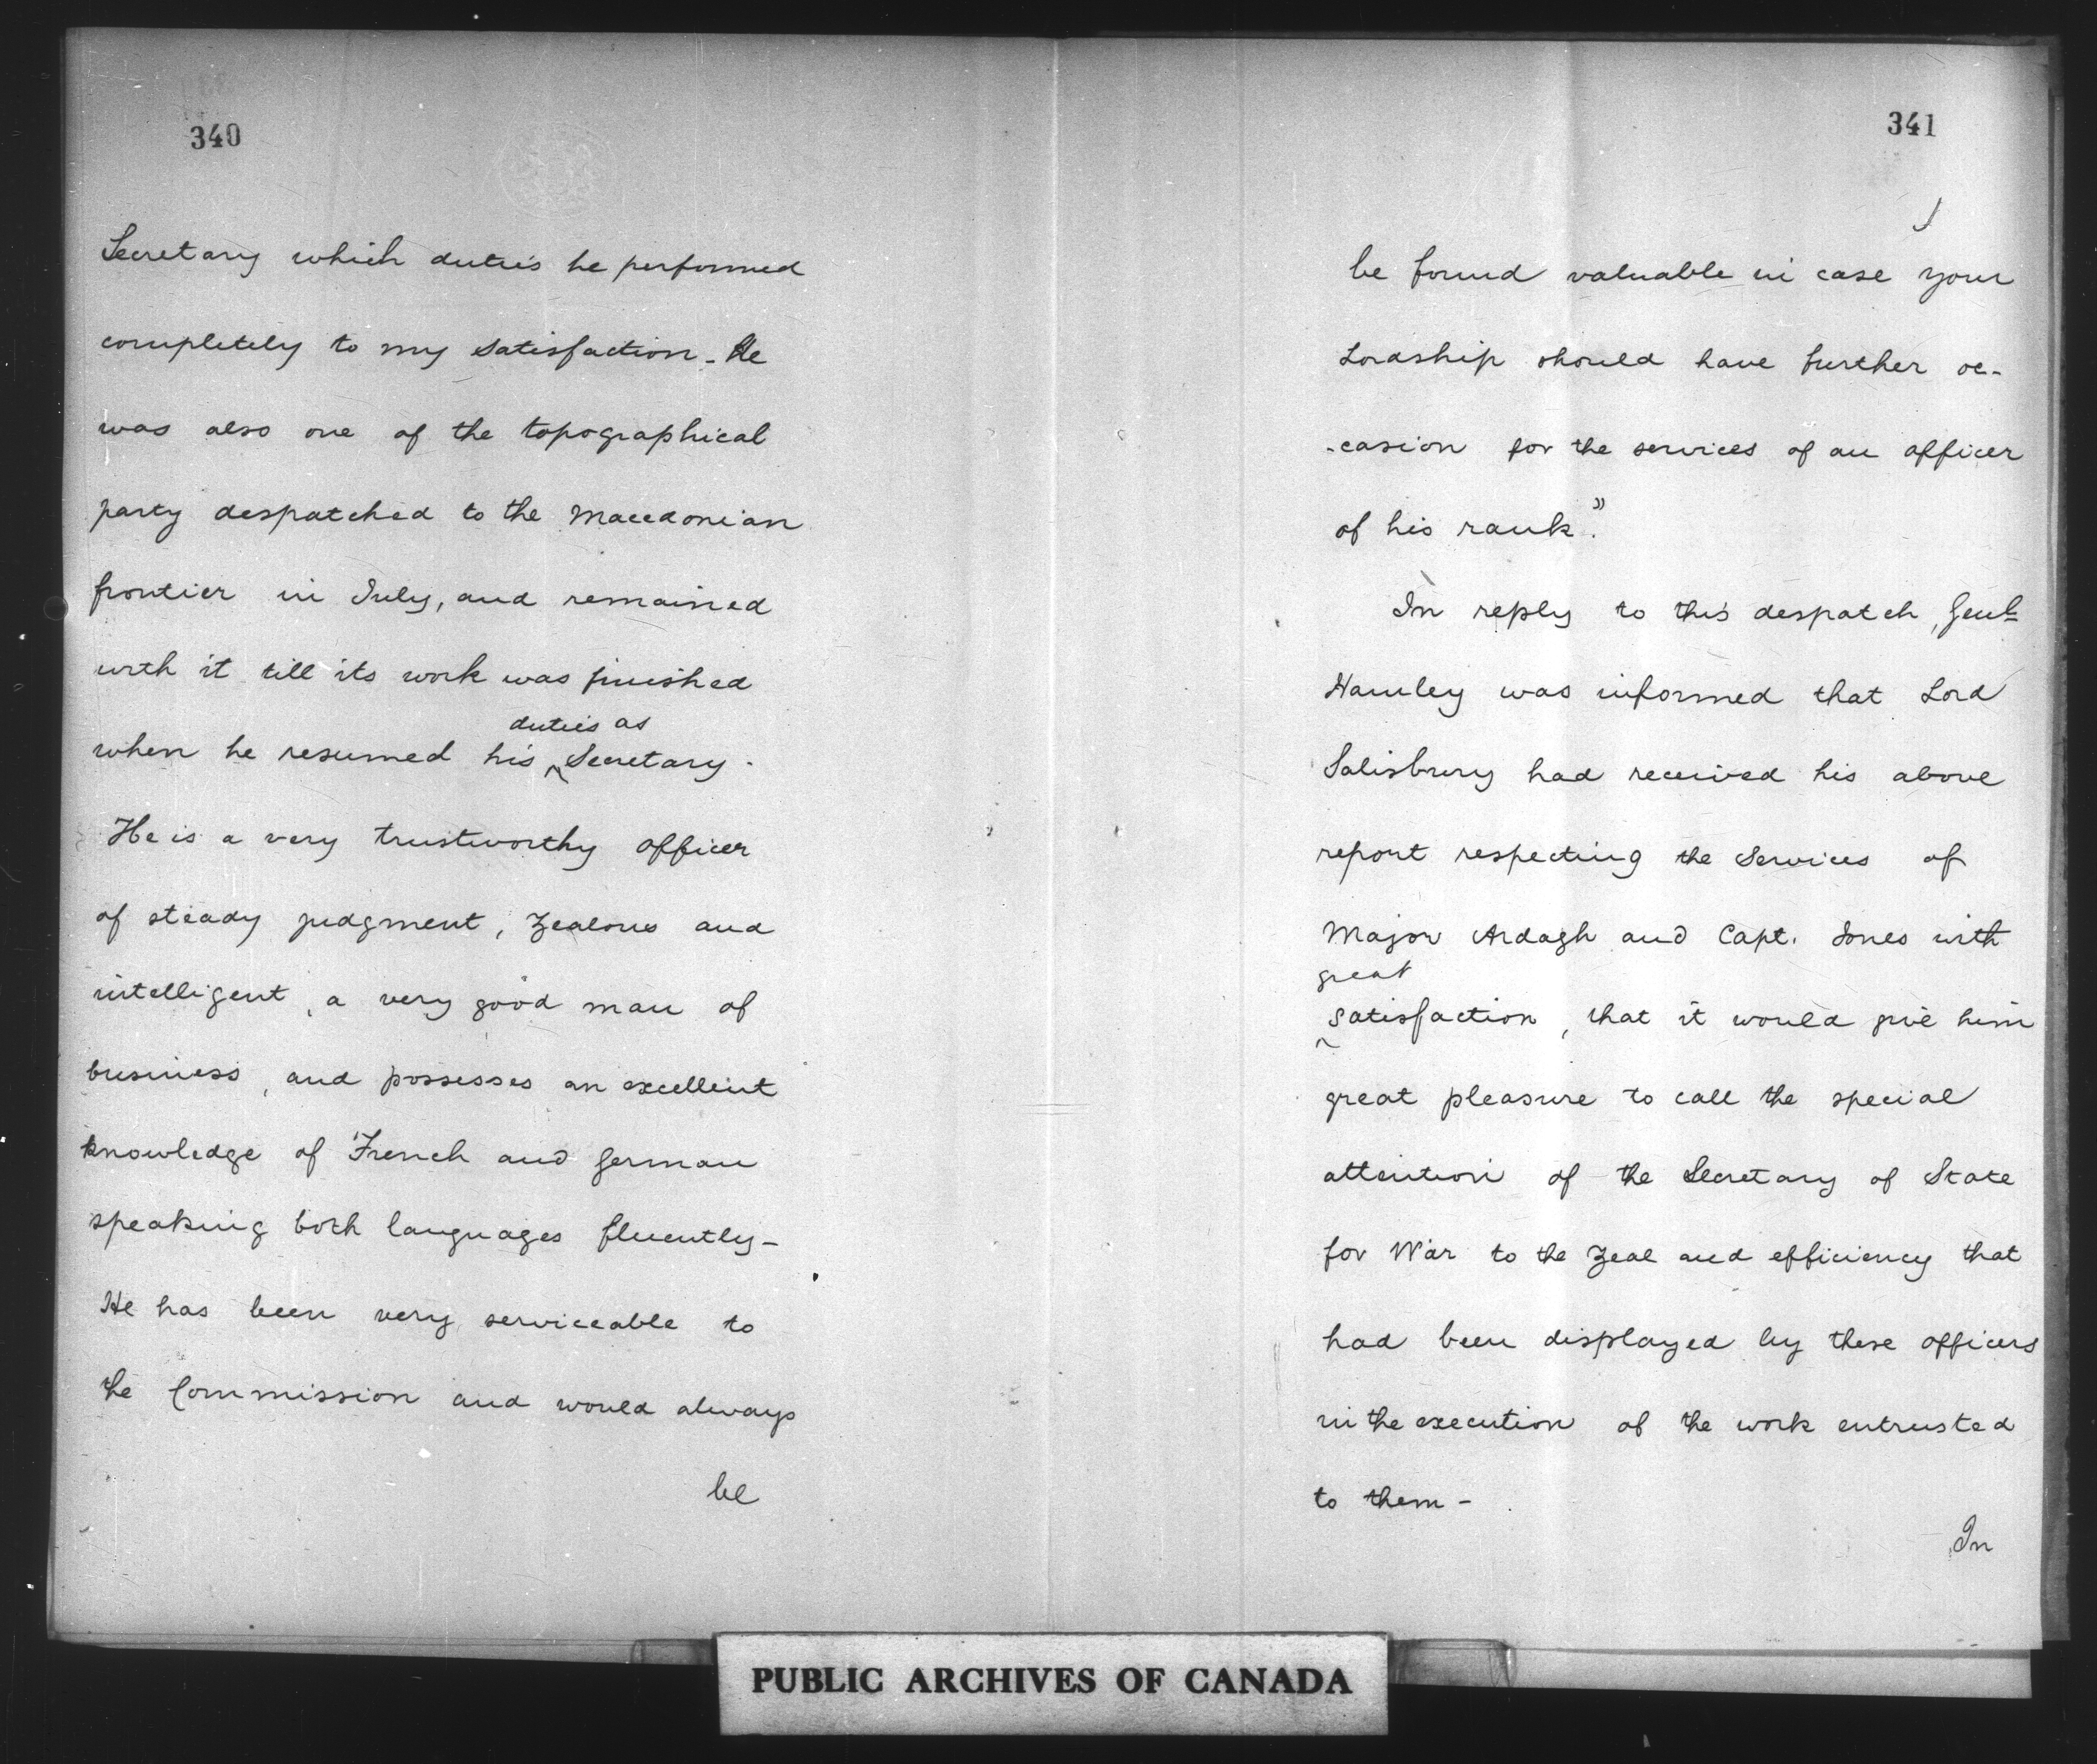 340
Secretary which duties he performed
completely to my satisfaction - He
was also one of the topographical
party despatched to the Macedonian
frontier in July, and remained
with it till its work was finished
duties as
when he resumed his ^ Secretary.
He is a very trustworthy officer
of steady judgment, zealous and
intelligent, a very good man of
business, and possesses an excellent
knowledge of French and German
speaking both languages fluently -
He has been very serviceable to
the Commission and would always
be
341
be found valuable in case your
Lordship should have further oc-
-casion for the services of an officer
of his rank."
In reply to this despatch, Genl
Hamley was informed that Lord
Salisbury had received his above
report respecting the services of
Major Ardagh and Capt. Jones with
great
^ satisfaction, that it would give him
great pleasure to call the special
attention of the Secretary of State
for War to the zeal and efficiency that
had been displayed by these officers
in the execution of the work entrusted
to them -
In
PUBLIC ARCHIVES OF CANADA